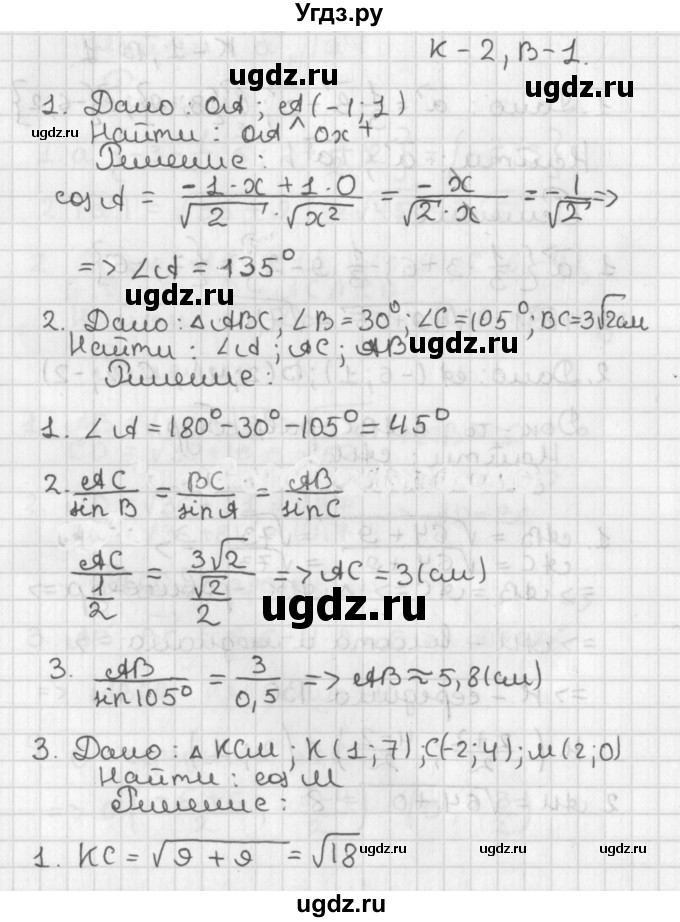 Угдз.ру
К - 2, В - 1.
ugdz.ru
1. Дано: OA; A(-1; 1)
ugdz.ru
Найти: OA ^ Ox +
ugdz.ru
Решение:
cos A = (-1·x + 1·0)/(√2 · √x²) = -x/(√2·x) = -1/√2 =>
=> ∠A = 135°
ugdz.ru
2. Дано: △ABC; ∠B = 30°; ∠C = 105°; BC = 3√2 см
Найти: ∠A; AC; AB
ugdz.ru
Решение:
1. ∠A = 180° - 30° - 105° = 45°
2. AC/sin B = BC/sin A = AB/sin C
AC/(1/2) = 3√2/(√2/2) => AC = 3 (см)
ugdz.ru
3. AB/sin 105° = 3/0,5 => AB ≈ 5,8 (см)
ugdz.ru
3. Дано: △KCM; K(1; 7); C(-2; 4); M(2; 0)
Найти: cos M
Решение:
1. KC = √9 + 9 = √18
ugdz.ru
ugdz.ru
ugdz.ru
ugdz.ru